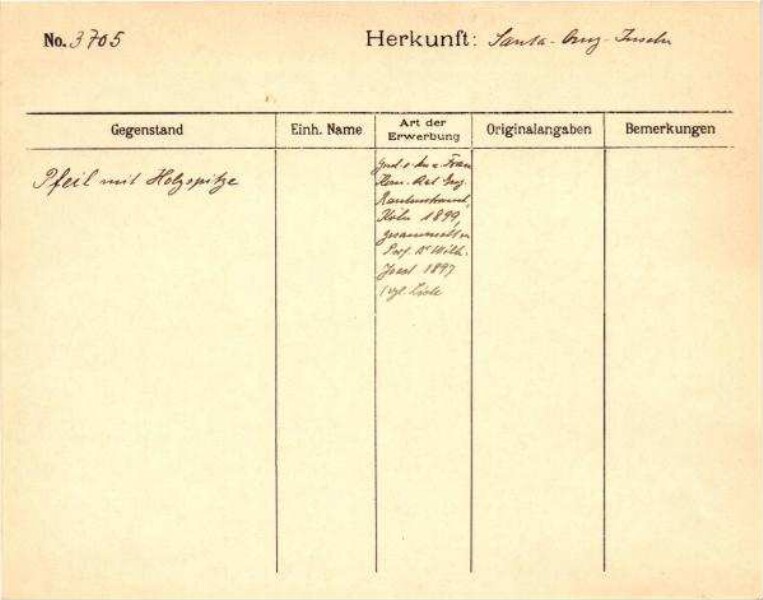 No. 3705
Herkunft: Santa-Cruz-Inseln
Gegenstand
Einh. Name
Art der Erwerbung
Originalangaben
Bemerkungen
Pfeil mit Holzspitze
Frau
Rautenstrauch,
Köln 1899,
gesammelt v.
Prof. Dr Wilh.
Joest 1897
(vgl. Liste